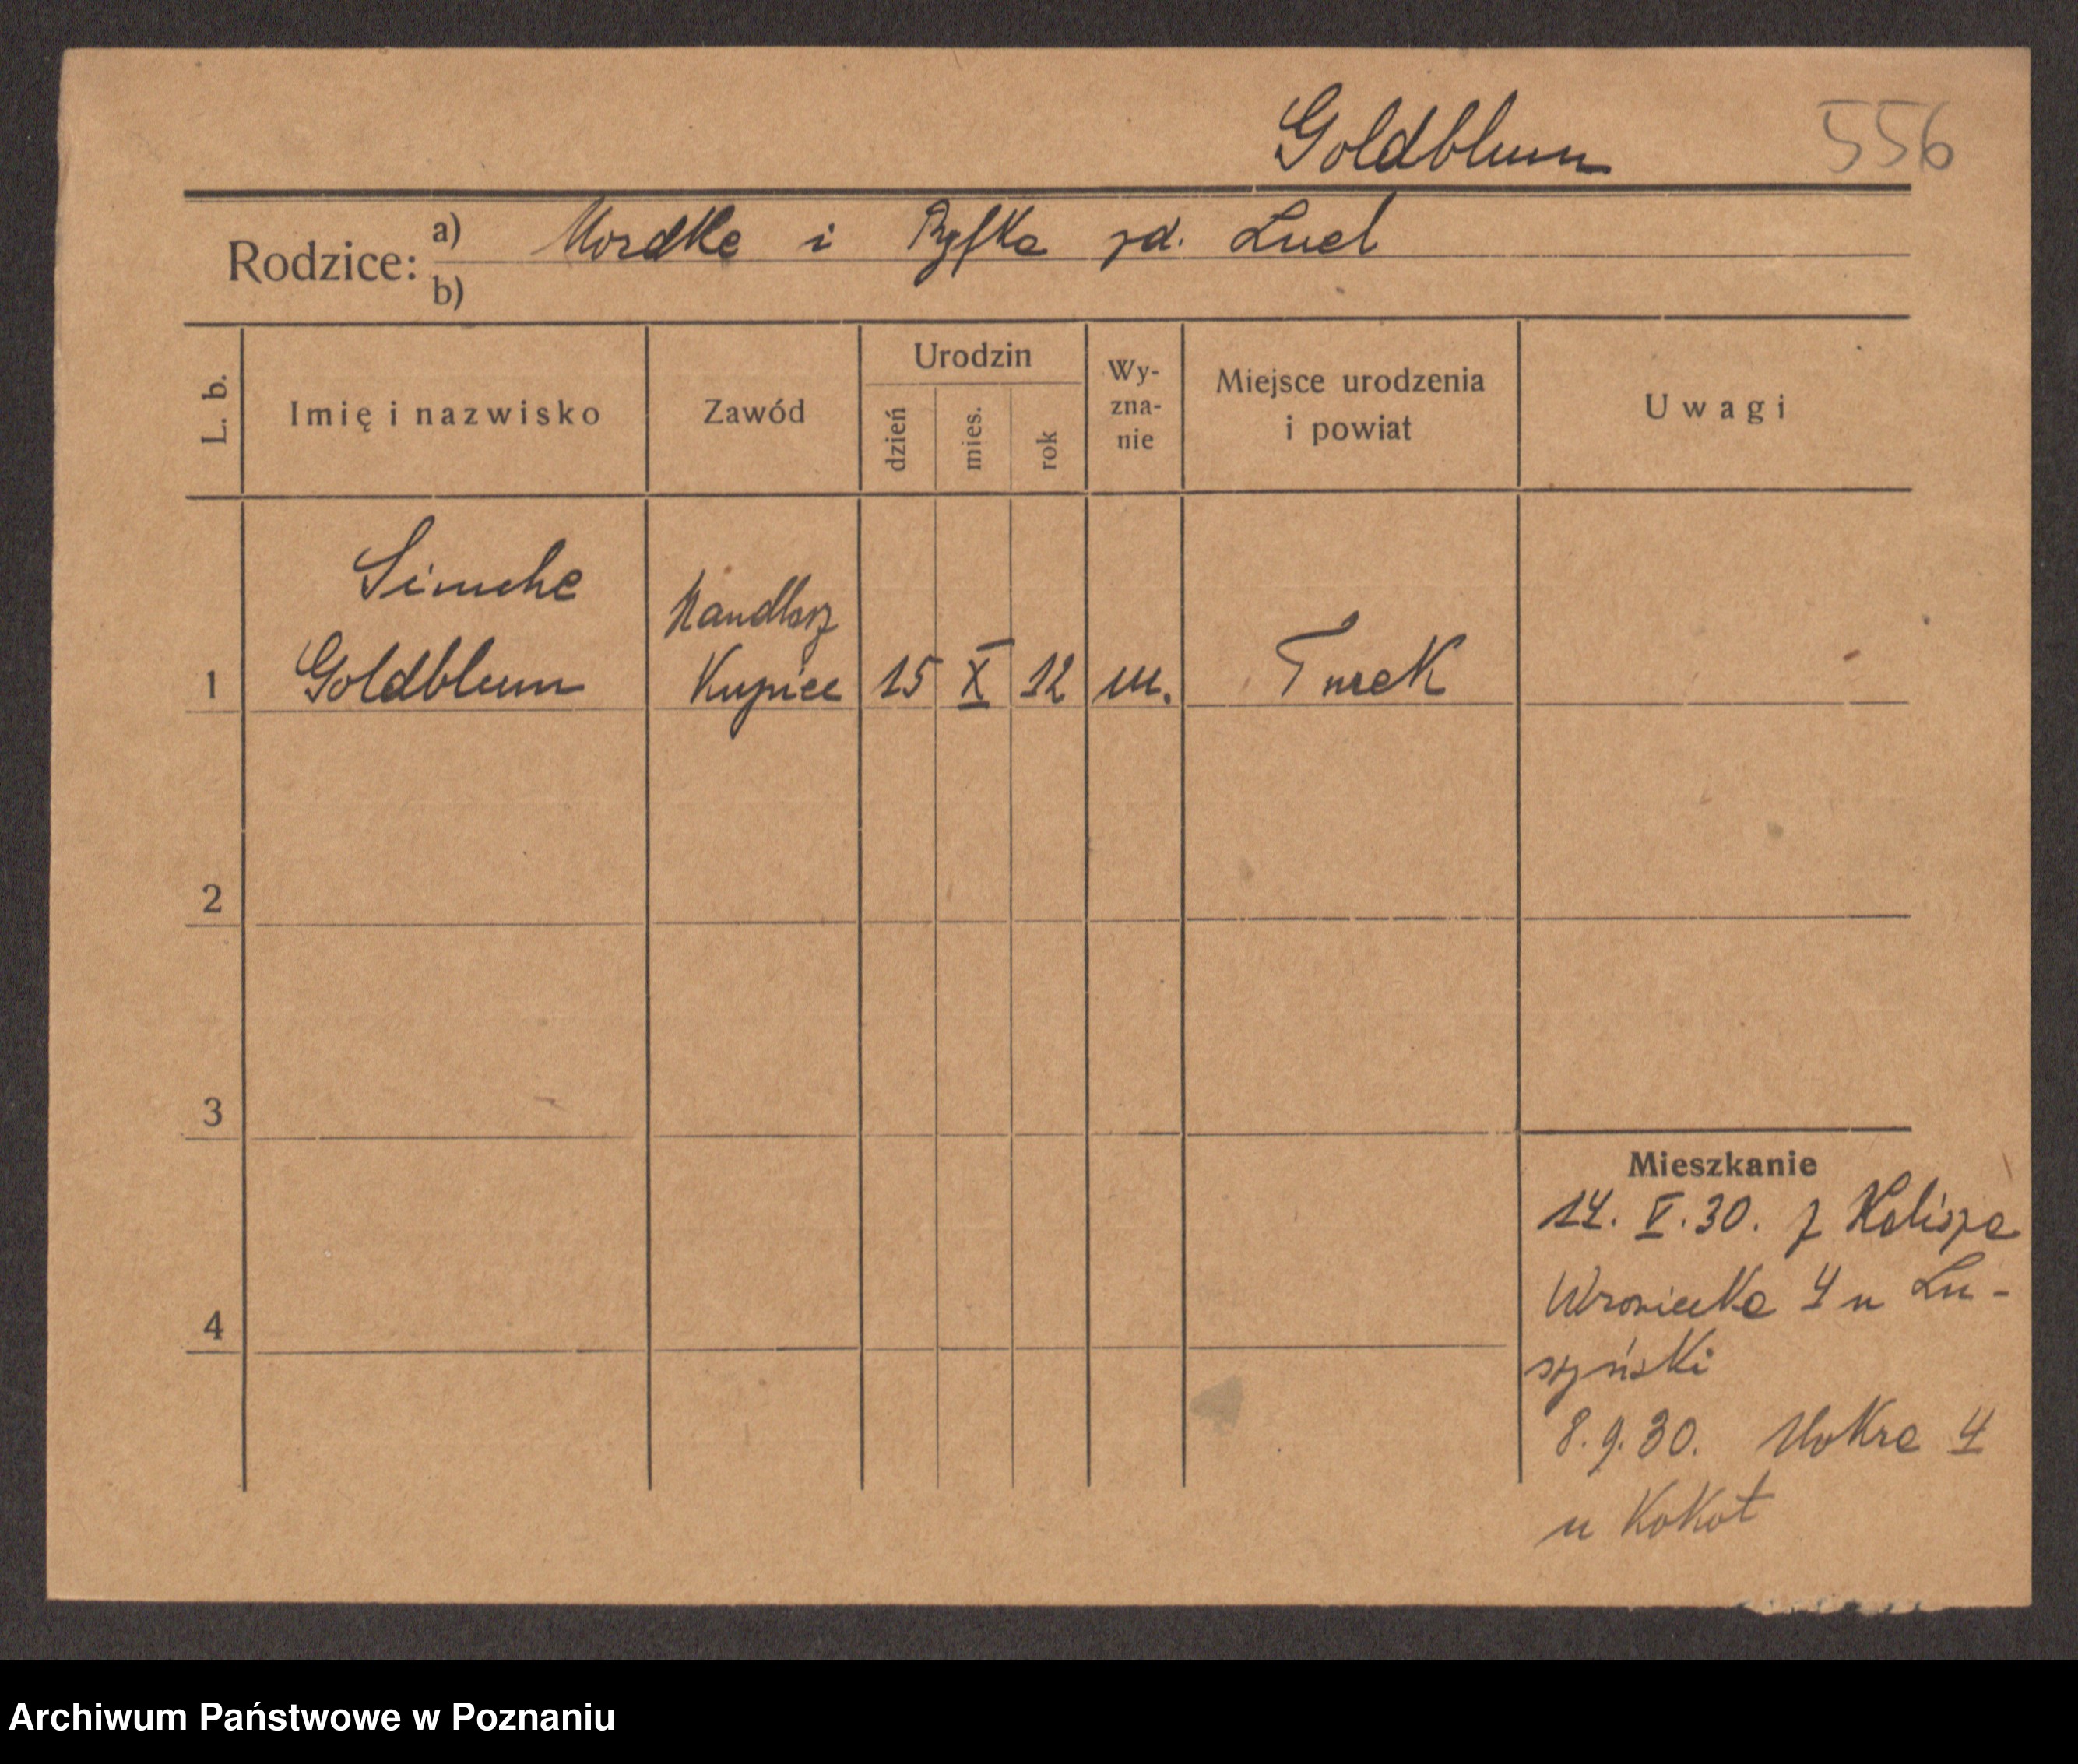 Goldblum 556
Rodzice: a) Mordke i Ryfka zd. Luel
b)
L. b.
Imię i nazwisko
Zawód
Urodzin
dzień
mies.
rok
Wy-
zna-
nie
Miejsce urodzenia
i powiat
Uwagi
Simche
Handlarz
1 Goldblum Kupiec 15 X 12 m. Turek
2
3
4
Mieszkanie
14. V. 30. z Kalisza
Wroniecka 4 u Lu-
szyński
8.9.30. Mokra 4
u Kokot
Archiwum Państwowe w Poznaniu